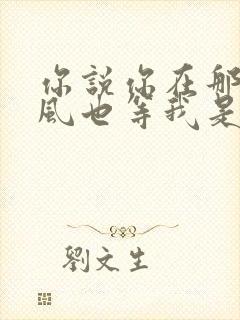 你說你在那
風也等我是
劉文生